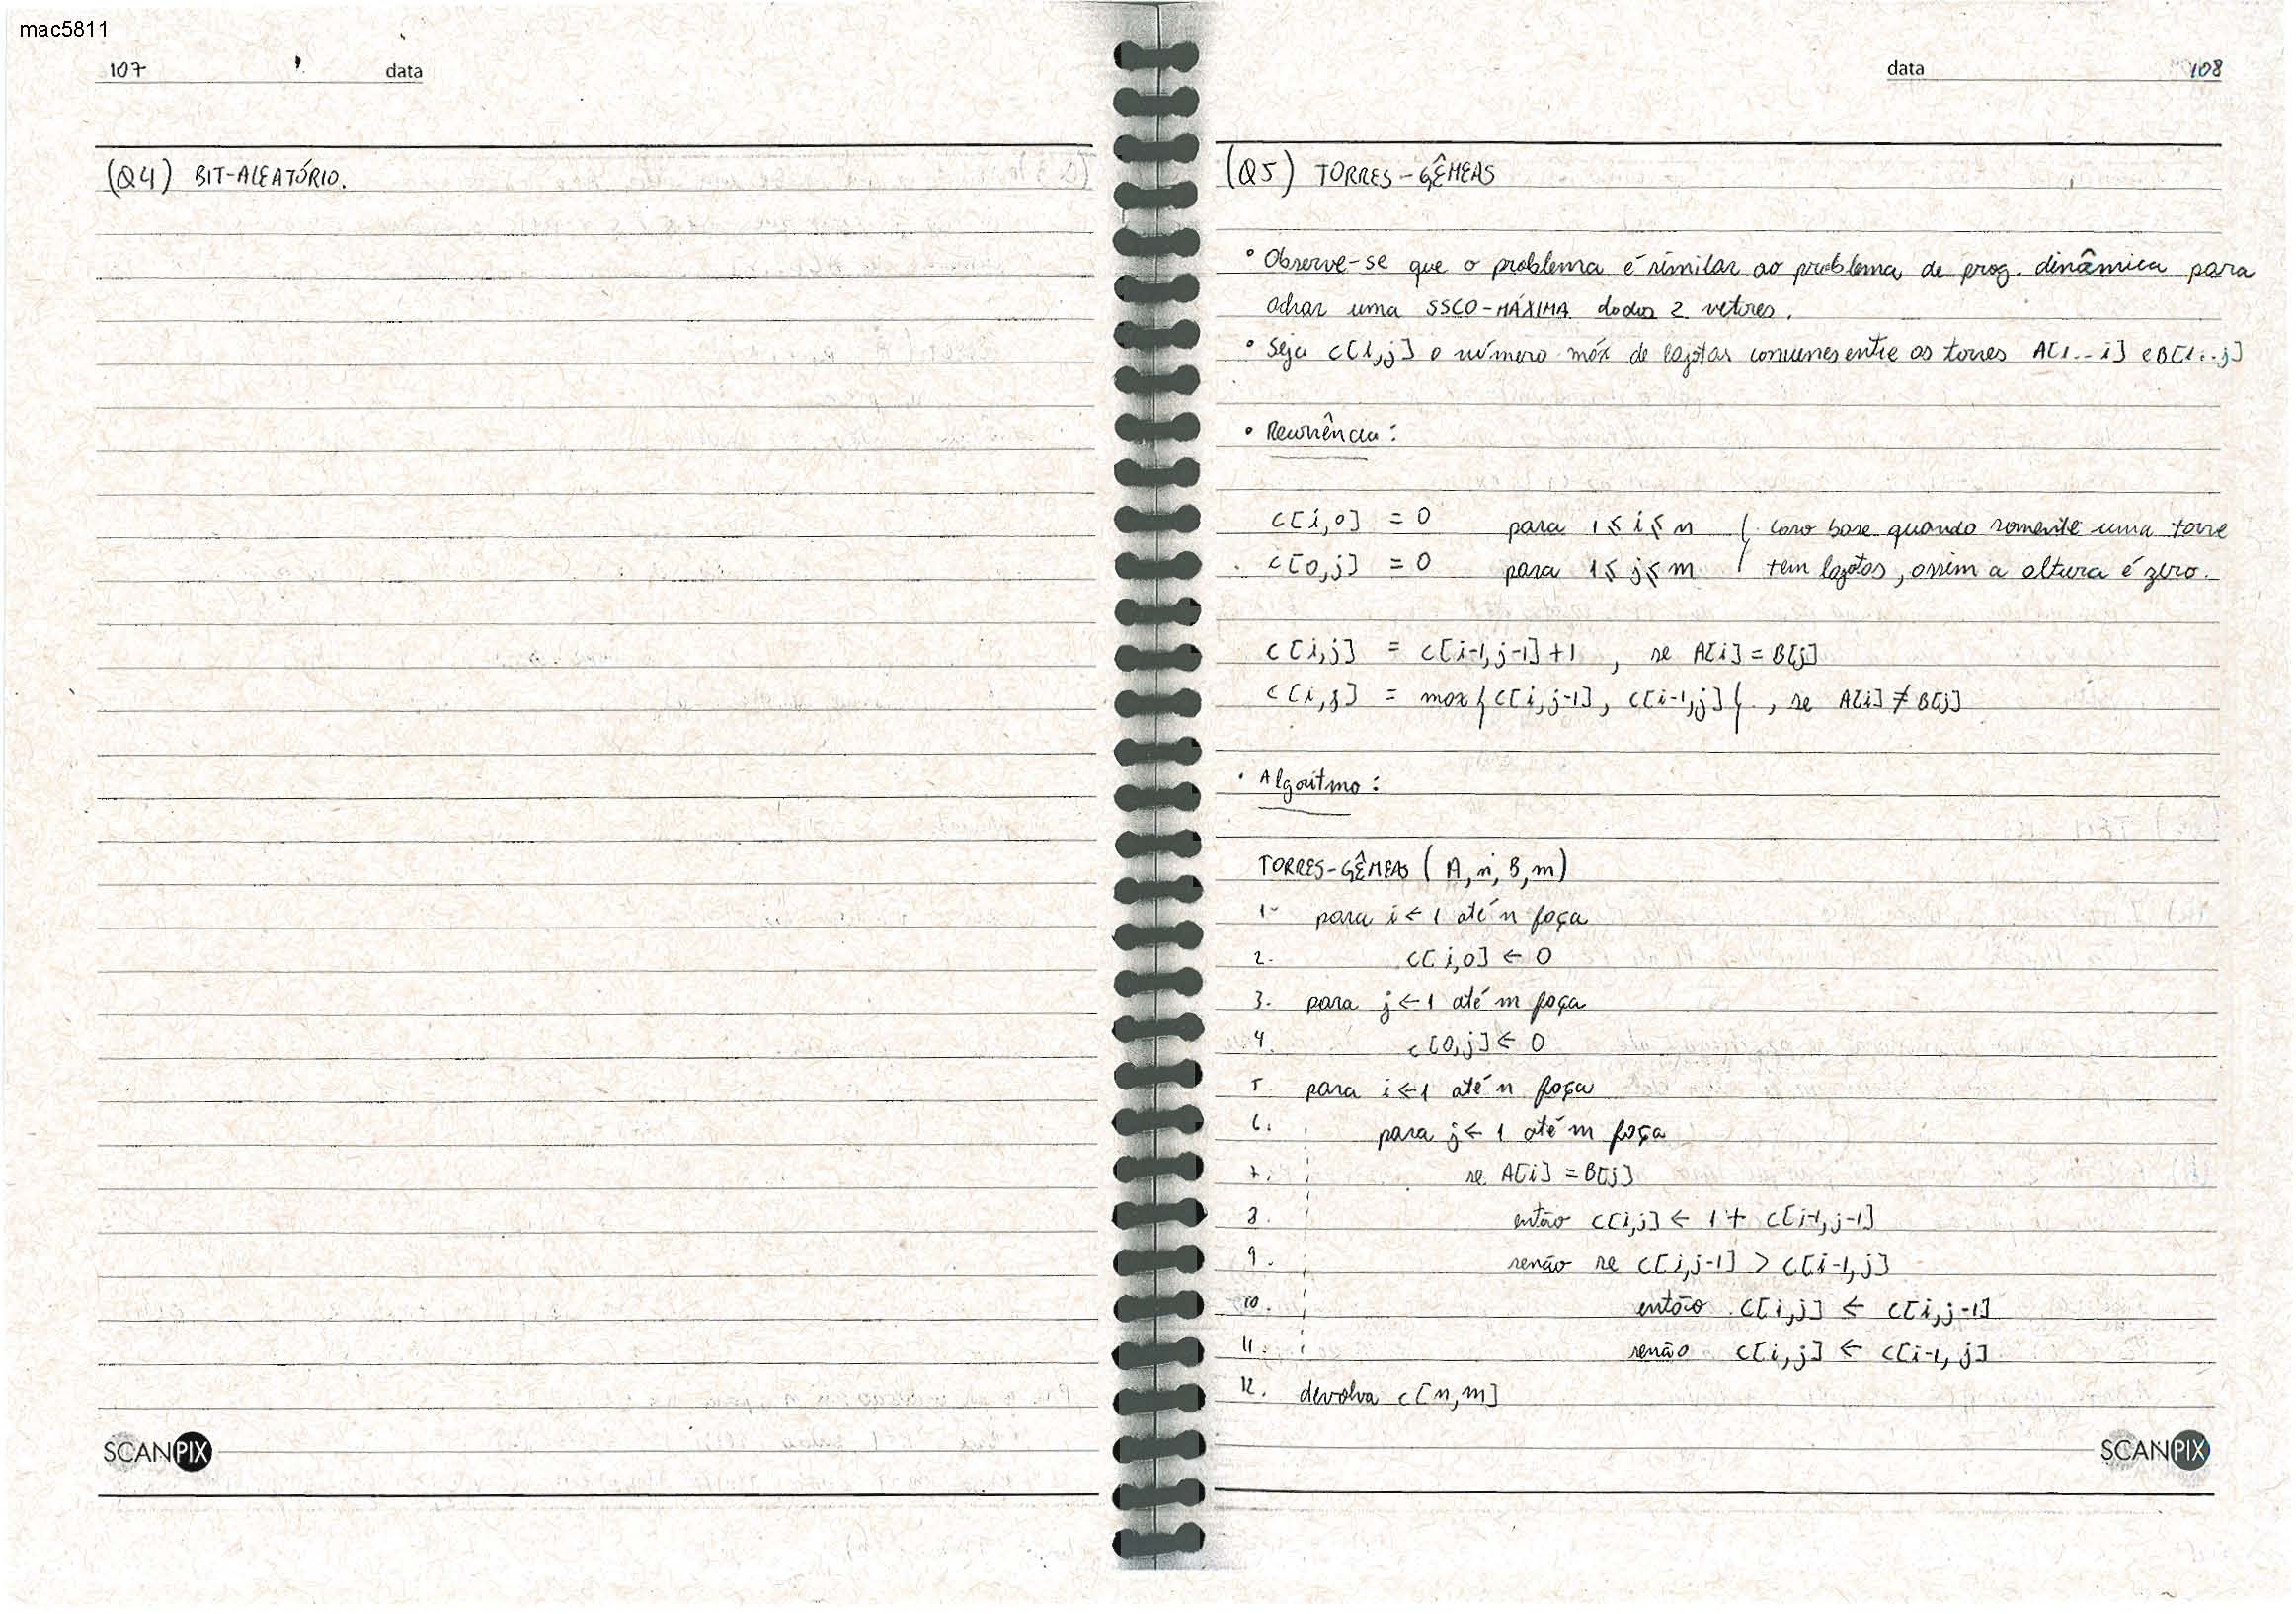 mac5811
107 data
(Q4) BIT-ALEATÓRIO.
SCANPIX
data 108
(Q5) TORRES-GÊMEAS
• Observe-se que o problema é similar ao problema de prog. dinâmica para
achar uma SSCO-MÁXIMA dados 2 vetores.
• Seja c[i,j] o número máx de lajotas comunes entre as torres A[1..i] e B[1..j]
• Recurrência:
c[i,0] = 0 para 1 ≤ i ≤ n { caso base quando somente uma torre
c[0,j] = 0 para 1 ≤ j ≤ m { tem lajotas, assim a altura é zero.
c[i,j] = c[i-1,j-1]+1 , se A[i] = B[j]
c[i,j] = max{c[i,j-1], c[i-1,j]}, se A[i] ≠ B[j]
• Algoritmo:
TORRES-GÊMEAS (A, n, B, m)
1- para i ← 1 até n faça
2. c[i,0] ← 0
3. para j ← 1 até m faça
4. c[0,j] ← 0
5. para i ← 1 até n faça
6. para j ← 1 até m faça
7. se A[i] = B[j]
8. então c[i,j] ← 1 + c[i-1,j-1]
9. senão se c[i,j-1] > c[i-1,j]
10. então c[i,j] ← c[i,j-1]
11. senão c[i,j] ← c[i-1,j]
12. devolva c[n,m]
SCANPIX